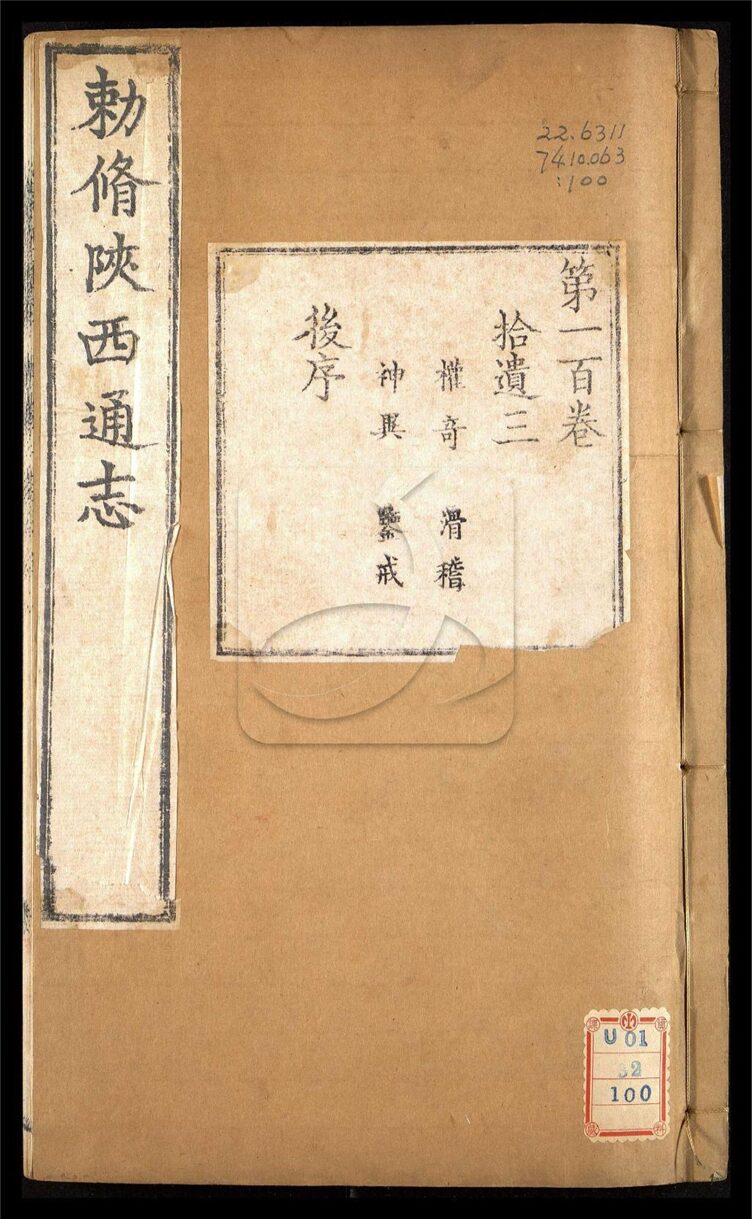 勅脩陝西通志
22.6311
7410.063
:100
第一百卷
拾遺三
權奇 滑稽
神異 鑒戒
後序
U 01
32
100